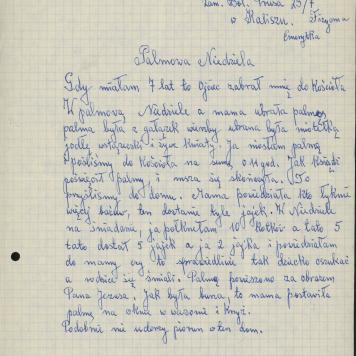 zam. Bol. Prusa 25/7
w Kaliszu.
Emerytka
Palmowa Niedziela
Gdy miałam 7 lat to Ojciec zabrał mnię do Kościoła
W palmową Niedziele a mama ubrała palmę
palma była z gałązek wierzby ubrana była
jodłę wstążeczki i żywe kwiaty. Ja niosłam palmę
poszliśmy do Kościoła na sumę o 11 god. Jak ksiądz
poświęcił palmy i msza się skończyła. To
przyszliśmy do domu. Mama powiedziała kto łyknie
więcej baźków, ten dostanie tyle jajek. W Niedziele
na śniadaniu, ja połknęłam 10 kotków a tato 5
tato dostał 5 jajek a ja 2 jajka i powiedziałam
do mamy czy to sprawiedliwie tak dziecko oszukać
a rodzice się śmiali. Palmę powieszono za obrazem
Pana Jezusa. Jak była burza, to mama postawiła
palmę na oknie w wazonie i Krzyż.
Podobnie nie uderzy piorun o ten dom.